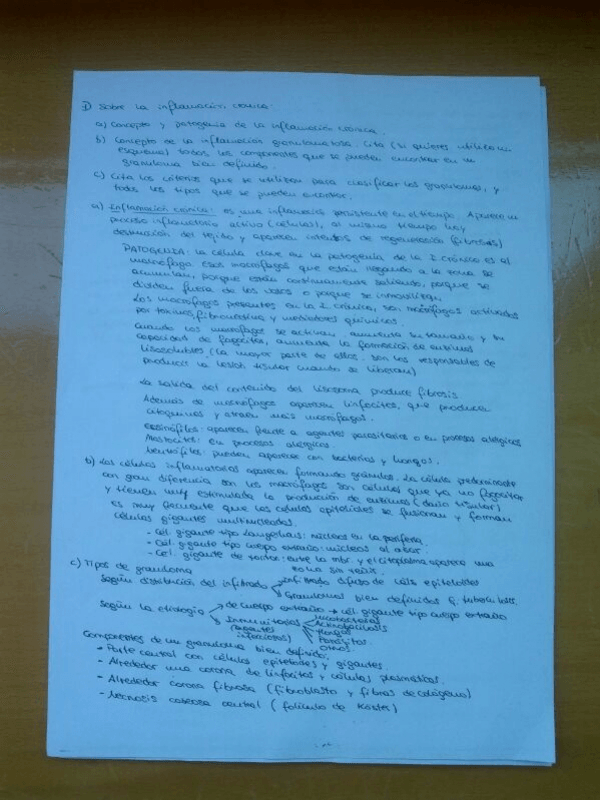 1) Sobre la inflamación crónica:
a) Concepto y patogenia de la inflamación crónica.
b) Concepto de la inflamación granulomatosa. Cita (si quieres utiliza un
esquema) todos los componentes que se pueden encontrar en un
granuloma bien definido.
c) Cita los criterios que se utilizan para clasificar los granulomas, y
todos los tipos que se pueden encontrar.
a) Inflamación crónica: es una inflamación persistente en el tiempo. Aparece un
proceso inflamatorio activo (células), al mismo tiempo hay
destrucción del tejido y aparecen intentos de regeneración (fibrosis)
PATOGENIA: La célula clave en la patogenia de la I. crónica es el
macrófago. Esos macrófagos que están llegando a la zona se
acumulan, porque están continuamente saliendo, porque se
dividen fuera de los vasos o porque se inmovilizan.
Los macrófagos presentes en la I. crónica, son macrófagos activados
por toxinas, fibronectina y mediadores químicos.
Cuando los macrófagos se activan aumenta su tamaño y su
capacidad de fagocitar, aumenta la formación de enzimas
lisosolubles (la mayor parte de ellos son los responsables de
producir la lesión tisular cuando se liberan)
La salida del contenido del lisosoma produce fibrosis
Además de macrófagos aparecen linfocitos, que producen
citoquinas y atraen más macrófagos.
Eosinófilos: aparecen frente a agentes parasitarios o en procesos alérgicos
Mastocitos: en procesos alérgicos.
Neutrófilos: pueden aparecer con bacterias y hongos.
b) Las células inflamatorias aparecen formando gránulos. La célula predominante
con gran diferencia son los macrófagos son células que ya no fagocitan
y tienen muy estimulada la producción de enzimas (daño tisular)
Es muy frecuente que las células epiteliodes se fusionan y forman
células gigantes multinucleadas.
- Cél. gigante tipo Langerhans: núcleos en la periferia.
- Cél. gigante tipo cuerpo extraño: núcleos al azar.
- Cél. gigante de Touton: entre la mbr. y el citoplasma aparece una
zona sin teñir.
c) Tipos de granuloma
Según distribución del infiltrado Infiltrado difuso de céls epiteloides
Granulomas bien definidos
Según la etiología de cuerpo extraño → cél. gigante tipo cuerpo extraño
Inmunitarios (agentes infecciosos) Micobacterias
Actinobacilosis
Hongos
Parásitos
Otros
Componentes de un granuloma bien definido:
- Parte central con células epiteliodes y gigantes.
- Alrededor una corona de linfocitos y células plasmáticas.
- Alrededor corona fibrosa (fibroblasto y fibras de colágeno)
- Necrosis caseosa central (folículo de Köster)